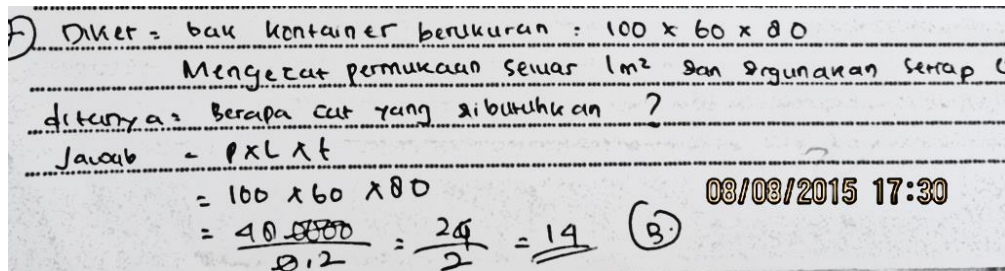 Diket = bak kontainer berukuran : 100 x 60 x 80
Mengecat permukaan seluas 1 m² dan digunakan setiap
ditanya = Berapa cat yang dibutuhkan ?
Jawab = P x L x t
= 100 x 60 x 80
08/08/2015 17:30
= 48.0000 / 0,2 = 24 / 2 = 14 (B.)